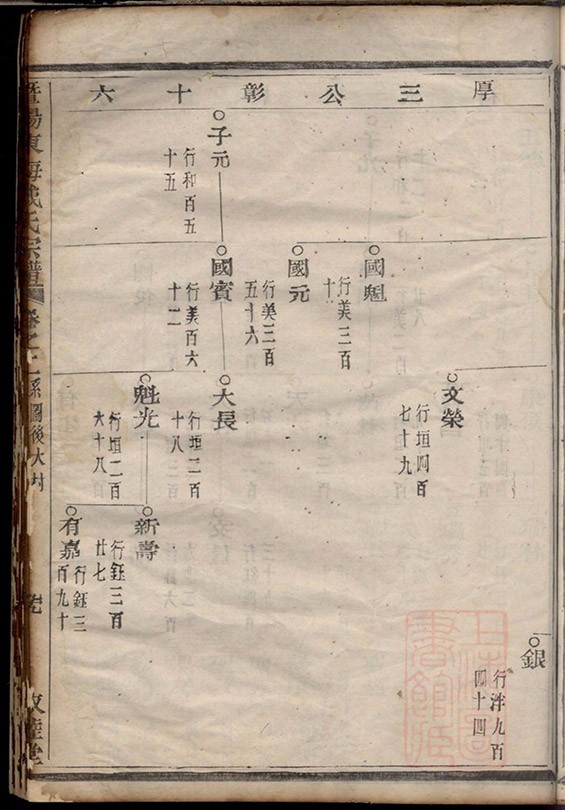 厚三公彰十六
銀
行泮九百
四十四
文榮
行垣四百
七十九
國魁
行美三百
十
國元
行美三百
五十六
子元
行和百五
十五
國賓
行美百六
十二
大長
行垣二百
十八
魁光
行垣二百
六十八
新壽
行鈺三百
廿七
有嘉
行鈺三
百九十
暨陽東海戚氏宗譜
卷之二系圖後大村